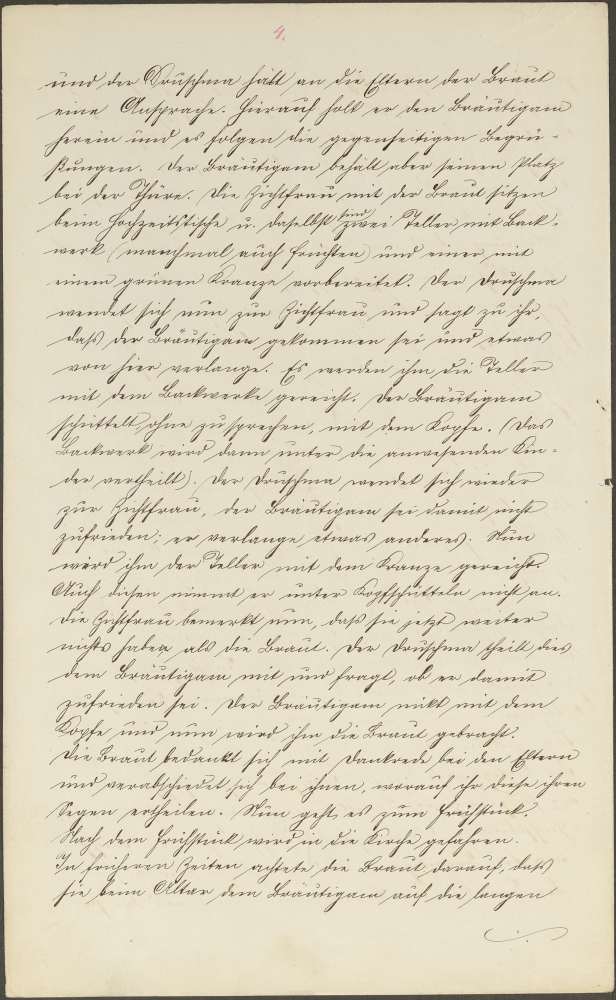 4.
und der Druschma hält an die Eltern der Braut
eine Ansprache. Hierauf holt er den Bräutigam
herein und es folgen die gegenseitigen Begrü-
ßungen. Der Bräutigam behält aber seinen Platz
bei der Thüre. Die Zichtfrau mit der Braut sitzen
beim Hochzeitstische u. daselbst sind zwei Teller mit Back-
werk (manchmal auch Früchten) und einer mit
einem grünen Kranze vorbereitet. Der Druschma
wendet sich nun zur Zichtfrau und sagt zu ihr,
daß der Bräutigam gekommen sei und etwas
von hier verlange. Es werden ihm die Teller
mit dem Backwerke gereicht. Der Bräutigam
schüttelt, ohne zu sprechen, mit dem Kopfe. (Das
Backwerk wird dann unter die anwesenden Kin-
der vertheilt). Der Druschma wendet sich wieder
zur Zichtfrau, der Bräutigam sei damit nicht
zufrieden; er verlange etwas anderes. Nun
wird ihm der Teller mit dem Kranze gereicht.
Auch diesen nimmt er unter Kopfschütteln nicht an.
Die Zichtfrau bemerkt nun, daß sie jetzt weiter
nichts habe, als die Braut. Der Druschma theilt dies
dem Bräutigam mit und fragt, ob er damit
zufrieden sei. Der Bräutigam nikt mit dem
Kopfe und nun wird ihm die Braut gebracht.
Die Braut bedankt sich mit Dankrede bei den Eltern
und verabschiedet sich bei ihnen, worauf ihr diese ihren
Segen ertheilen. Nun geht es zum Frühstück.
Nach dem Frühstück wird in die Kirche gefahren.
In früheren Zeiten achtete die Braut darauf, daß
sie beim Altar dem Bräutigam auf die langen